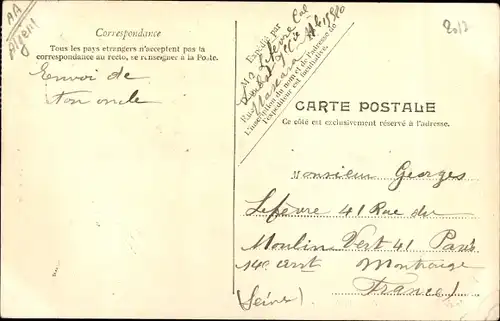 AA
Algeri
2013
Correspondance
Tous les pays etrangers n'acceptent pas la
correspondance au recto, se renseigner à la Poste.
Envoi de
ton oncle
Expédié par
M
L'insertion du nom et de l'adresse de
l'expéditeur est facultative.
CARTE POSTALE
Ce côté est exclusivement réservé à l'adresse.
Monsieur Georges
Lefevre 41 Rue du
Moulin Vert 41 Paris
14e Montrouge
(Seine) France)